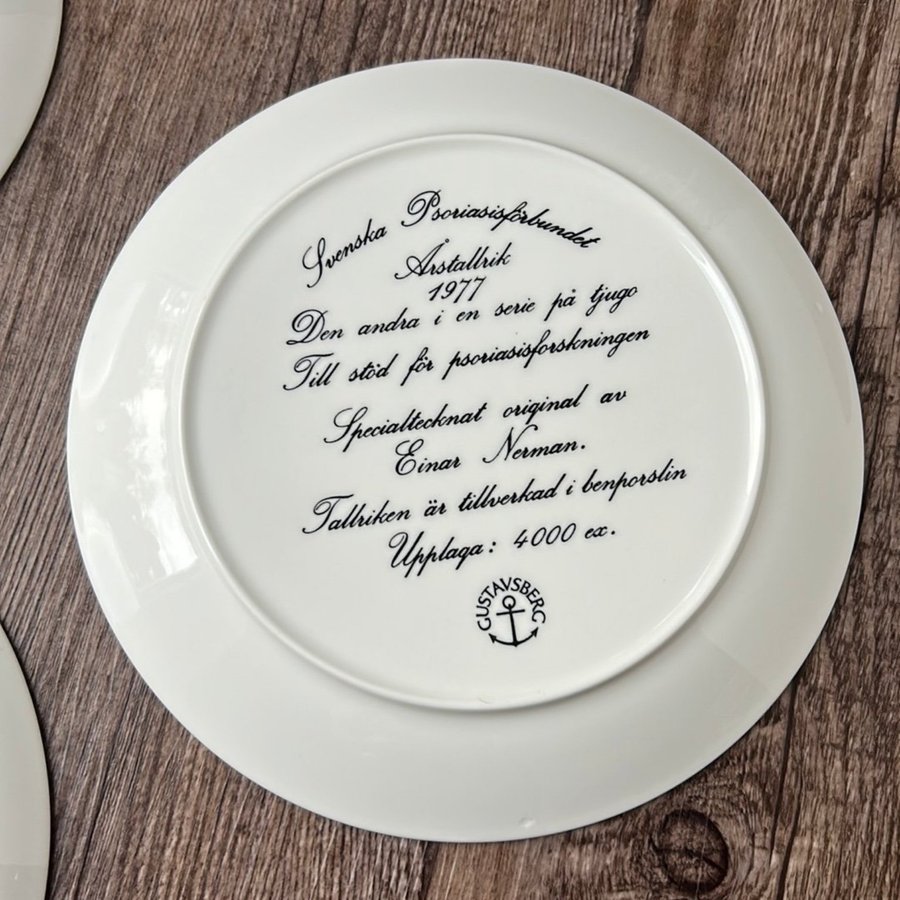 Svenska Psoriasisförbundet
Årstallrik
1977
Den andra i en serie på tjugo
Till stöd för psoriasisforskningen
Specialtecknat original av
Einar Nerman.
Tallriken är tillverkad i benporslin
Upplaga: 4000 ex.
GUSTAVSBERG